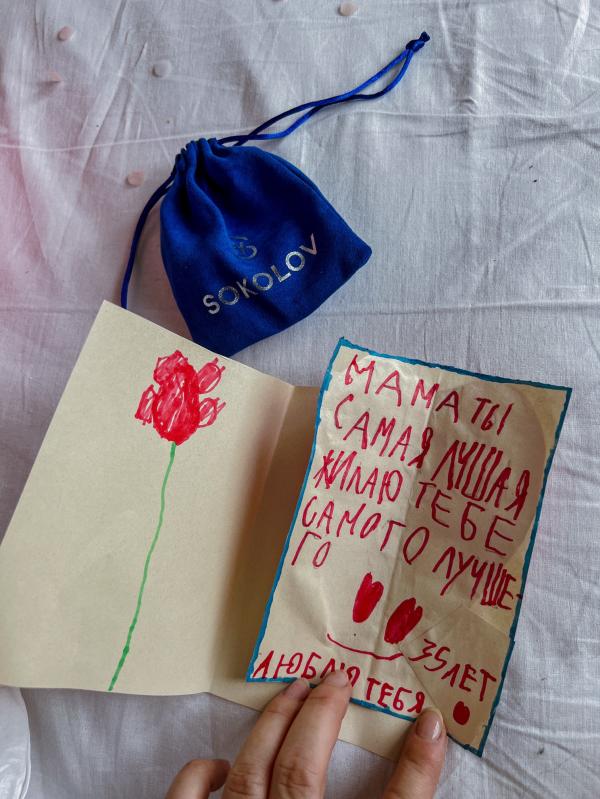 SOKOLOV
МАМА ТЫ
САМАЯ ЛУШАЯ
ЖИЛАЮ ТЕБЕ
САМОГО ЛУЧШЕ-
ГО
35 ЛЕТ
ЛЮБЛЮ ТЕБЯ